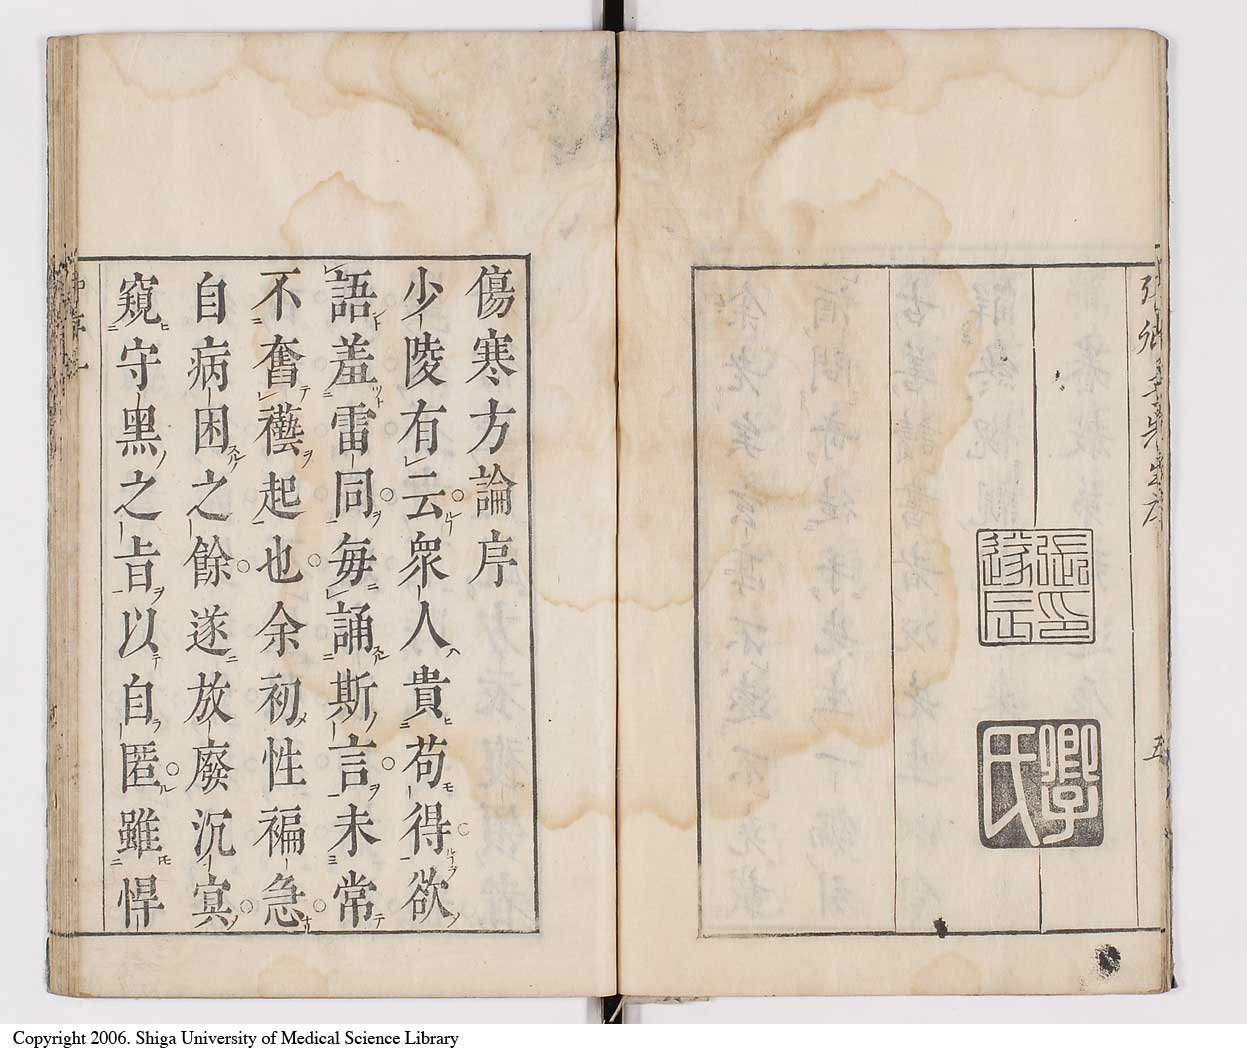 五
張印
遂辰
卿子
氏
傷寒方論序
少陵有云衆人貴苟得欲
語羞雷同毎誦斯言未常
不奮藝起也余初性褊急
自病困之餘遂放廢沉寘
窺守黑之㫖以自匿雖悍
Copyright 2006. Shiga University of Medical Science Library